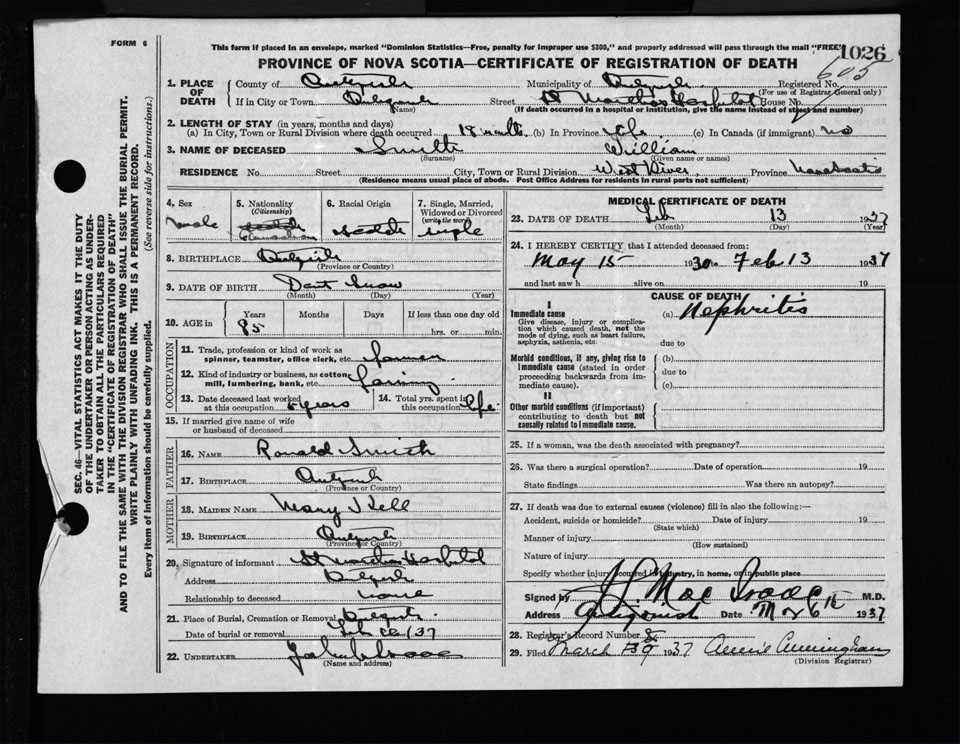 FORM 6
This form if placed in an envelope, marked "Dominion Statistics—Free, penalty for improper use $300," and properly addressed will pass through the mail "FREE"
1026
PROVINCE OF NOVA SCOTIA—CERTIFICATE OF REGISTRATION OF DEATH
605
1. PLACE OF DEATH
County of Antigonish Municipality of Antigonish Registered No.
(For use of Registrar General only)
If in City or Town Antigonish Street St Marthas Hospital House No.
(If death occurred in a hospital or institution, give the name instead of street and number)
2. LENGTH OF STAY (in years, months and days)
(a) In City, Town or Rural Division where death occurred 18 months (b) In Province life (c) In Canada (if immigrant) no
3. NAME OF DECEASED Smith William
(Surname) (Given name or names)
RESIDENCE No. Street City, Town or Rural Division West River Province Nova Scotia
(Residence means usual place of abode. Post Office Address for residents in rural parts not sufficient)
SEC. 46—VITAL STATISTICS ACT MAKES IT THE DUTY
OF THE UNDERTAKER OR PERSON ACTING AS UNDER-
TAKER TO OBTAIN ALL THE PARTICULARS REQUIRED
IN THE "CERTIFICATE OF REGISTRATION OF DEATH"
AND TO FILE THE SAME WITH THE DIVISION REGISTRAR WHO SHALL ISSUE THE BURIAL PERMIT.
WRITE PLAINLY WITH UNFADING INK. THIS IS A PERMANENT RECORD.
Every item of information should be carefully supplied. (See reverse side for instructions.)
4. Sex
male
5. Nationality
(Citizenship)
Canadian
6. Racial Origin
Scotch
7. Single, Married, Widowed or Divorced
(write the word)
single
8. BIRTHPLACE Antigonish
(Province or Country)
9. DATE OF BIRTH Dont know
(Month) (Day) (Year)
10. AGE in
Years Months Days If less than one day old
85 hrs. or min.
OCCUPATION
11. Trade, profession or kind of work as
spinner, teamster, office clerk, etc. farmer
12. Kind of industry or business, as cotton
mill, lumbering, bank, etc. farming
13. Date deceased last worked
at this occupation years
14. Total yrs. spent in
this occupation life
15. If married give name of wife
or husband of deceased
FATHER
16. NAME Ronald Smith
17. BIRTHPLACE Antigonish
(Province or Country)
MOTHER
18. MAIDEN NAME Mary
19. BIRTHPLACE Antigonish
(Province or Country)
20. Signature of informant St Marthas Hospital
Address Antigonish
Relationship to deceased none
21. Place of Burial, Cremation or Removal Antigonish
Date of burial or removal Feb /37
22. UNDERTAKER
(Name and address)
MEDICAL CERTIFICATE OF DEATH
23. DATE OF DEATH Feb 13 1937
(Month) (Day) (Year)
24. I HEREBY CERTIFY that I attended deceased from:
May 15 1930 to Feb 13 1937
and last saw h alive on 19
CAUSE OF DEATH
I
Immediate cause
Give disease, injury or complica-
tion which caused death, not the
mode of dying, such as heart failure,
asphyxia, asthenia, etc.
(a) Nephritis
due to
Morbid conditions, if any, giving rise to
immediate cause (stated in order
proceeding backwards from im-
mediate cause).
(b)
due to
(c)
II
Other morbid conditions (if important)
contributing to death but not
causally related to immediate cause.
25. If a woman, was the death associated with pregnancy?
26. Was there a surgical operation? Date of operation 19
State findings Was there an autopsy?
27. If death was due to external causes (violence) fill in also the following:—
Accident, suicide or homicide? Date of injury 19
(State which)
Manner of injury
(How sustained)
Nature of injury
Specify whether injury occurred in industry, in home, or in public place
Signed by MacIsaac M.D.
Address Antigonish Date Mar 6th 1937
28. Registrar's Record Number
29. Filed March 1937 Annie Cunningham
(Division Registrar)